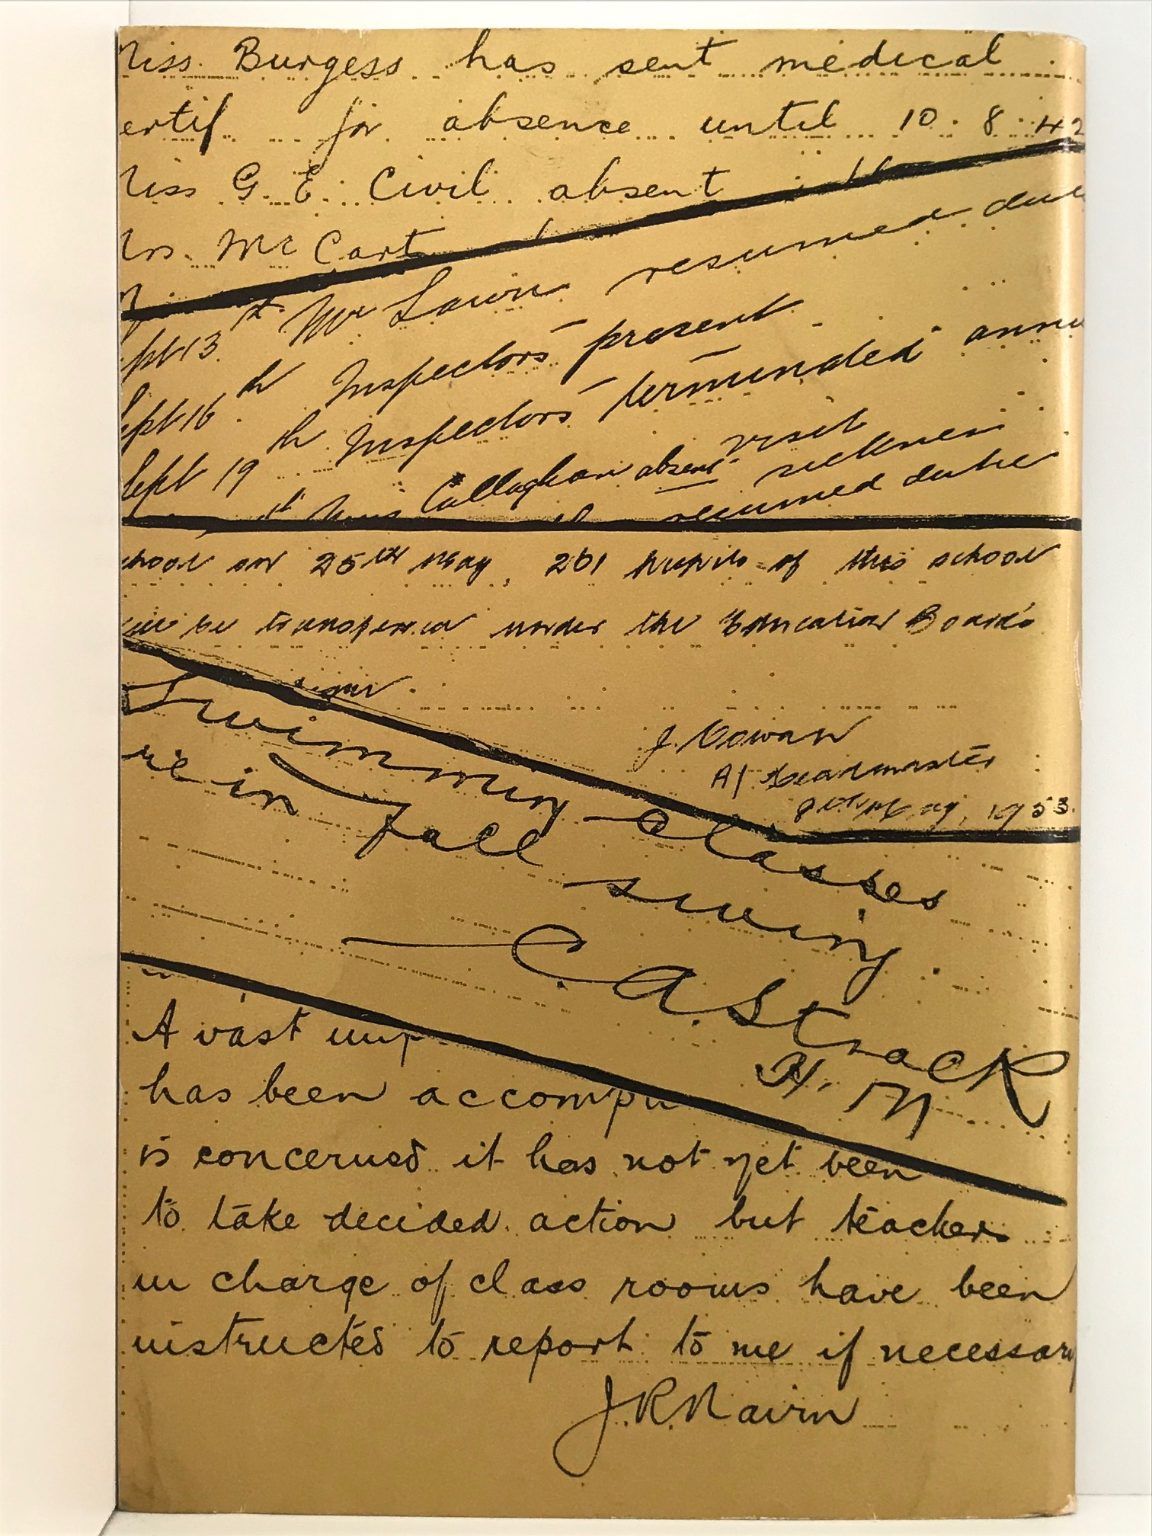 Miss Burgess has sent medical
certif. for absence until 10.8.42
Miss G.E. Civil absent
Mrs. McCart
Sept 13th Mr Lawn resumed dut
Sept 16th Inspectors present
Sept 19th Inspectors terminated annu
visit
Miss Callaghan absent sickness
resumed dutie
school on 25th May, 261 pupils of this school
will be transferred under the Education Board's
J. Cowan
A/ Headmaster
May, 1953.
Swimming classes
re in full swing.
C.A. Strack
H.M
A vast imp
has been accompli
is concerned it has not yet been
to take decided action but teachers
in charge of class rooms have been
instructed to report to me if necessary
J.R. Nairn